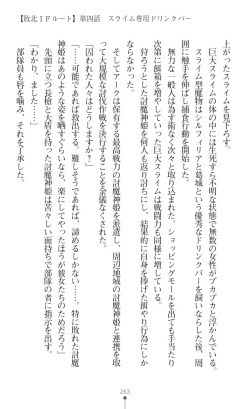 【敗北ＩＦルート】第四話　スライム専用ドリンクバー
上がったスライムを見下ろす。
　巨大スライムの体の中では生死すら不明な状態で無数の女性がプカプカと浮かんでいる。
　スライム型魔物はシルフィリアと葛城という優秀なドリンクバーを飼いならした後、周
囲に触手を伸ばし捕食行動を開始した。
　無力な一般人は為す術なく次々と取り込まれた。ショッピングモールを出ても手当たり
次第に餌箱を増やしていった巨大スライムは戦闘力も同様に増している。
　狩ろうとした討魔神姫も何人も返り討ちにし、結果的に自身を捧げた餌やり行為にしか
ならなかった。
　そしてアークは保有する最高戦力の討魔神姫を派遣し、周辺地域の討魔神姫と連携を取
って大規模な討伐作戦を決行することを余儀なくされた。
「囚われた人々はどうしますか？」
「……可能であれば救出する。難しそうであれば、諦めるしかない……特に敗れた討魔
神姫はあのような姿を晒すぐらいなら、楽にしてやったほうが彼女たちのためだろう」
「わかり、ました……」
　先頭に立つ長槍と大盾を持った討魔神姫は苦々しい面持ちで部下の者に指示を出す。
　部隊員らも唇を噛み、それを了承した。
263